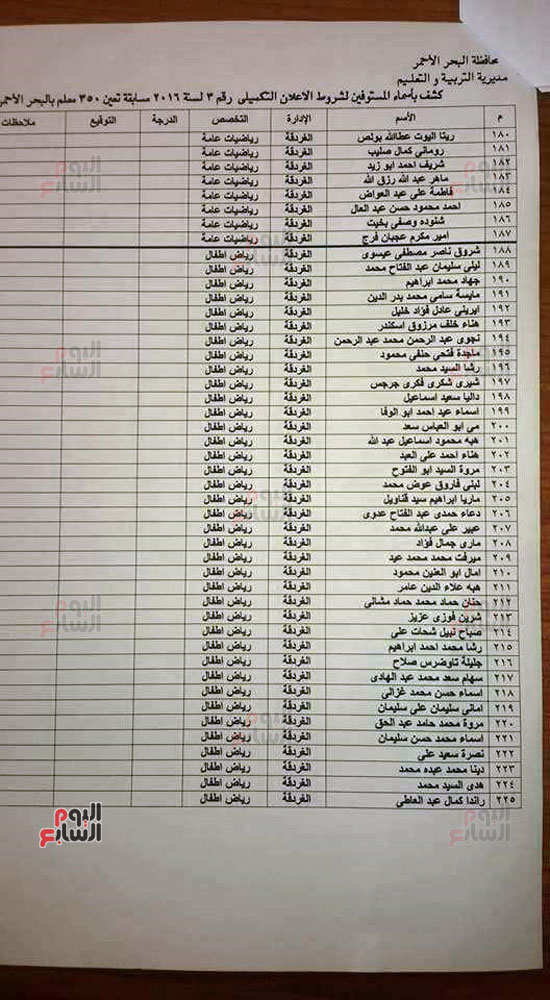 محافظة البحر الأحمر
مديرية التربية و التعليم
كشف بأسماء المستوفين لشروط الاعلان التكميلى رقم ٣ لسنة ٢٠١٦ مسابقة تعين ٣٥٠ معلم بالبحر الأحمر
م الأسم الإدارة التخصص الدرجة التوقيع ملاحظات
١٨٠ ريتا اليوت عطاالله بولص الغردقة رياضيات عامة
١٨١ رومانى كمال صليب الغردقة رياضيات عامة
١٨٢ شريف احمد ابو زيد الغردقة رياضيات عامة
١٨٣ ماهر عبد الله رزق الله الغردقة رياضيات عامة
١٨٤ فاطمة على عبد العواض الغردقة رياضيات عامة
١٨٥ احمد محمود حسن عبد العال الغردقة رياضيات عامة
١٨٦ شنوده وصفى بخيت الغردقة رياضيات عامة
١٨٧ أمير مكرم عجبان فرج الغردقة رياضيات عامة
١٨٨ شروق ناصر مصطفى عيسوى الغردقة رياض اطفال
١٨٩ ليلى سليمان عبد الفتاح محمد الغردقة رياض اطفال
١٩٠ جهاد محمد ابراهيم الغردقة رياض اطفال
١٩١ مايسة سامى محمد بدر الدين الغردقة رياض اطفال
١٩٢ ايرينى عادل فؤاد خليل الغردقة رياض اطفال
١٩٣ هناء خلف مرزوق اسكندر الغردقة رياض اطفال
١٩٤ نجوى عبد الرحمن محمد عبد الرحمن الغردقة رياض اطفال
١٩٥ ماجدة فتحى حنفى محمود الغردقة رياض اطفال
١٩٦ رشا السيد محمد الغردقة رياض اطفال
١٩٧ شيرى شكرى فكرى جرجس الغردقة رياض اطفال
١٩٨ داليا سعيد اسماعيل الغردقة رياض اطفال
١٩٩ اسماء عيد احمد ابو الوفا الغردقة رياض اطفال
٢٠٠ مى ابو العباس سعد الغردقة رياض اطفال
٢٠١ هبه محمود اسماعيل عبد الله الغردقة رياض اطفال
٢٠٢ هناء احمد على العبد الغردقة رياض اطفال
٢٠٣ مروة السيد ابو الفتوح الغردقة رياض اطفال
٢٠٤ لبنى فاروق عوض محمد الغردقة رياض اطفال
٢٠٥ ماريا ابراهيم سيد قناويل الغردقة رياض اطفال
٢٠٦ دعاء حمدى عبد الفتاح عدوى الغردقة رياض اطفال
٢٠٧ عبير على عبدالله محمد الغردقة رياض اطفال
٢٠٨ مارى جمال فؤاد الغردقة رياض اطفال
٢٠٩ ميرفت محمد محمد عيد الغردقة رياض اطفال
٢١٠ امال ابو العنين محمود الغردقة رياض اطفال
٢١١ هبه علاء الدين عامر الغردقة رياض اطفال
٢١٢ حنان حماد محمد حماد مشالى الغردقة رياض اطفال
٢١٣ شرين فوزى عزيز الغردقة رياض اطفال
٢١٤ صباح نبيل شحات على الغردقة رياض اطفال
٢١٥ رشا محمد احمد ابراهيم الغردقة رياض اطفال
٢١٦ جليلة تاوضرس صلاح الغردقة رياض اطفال
٢١٧ سهام سعد محمد عبد الهادى الغردقة رياض اطفال
٢١٨ اسماء حسن محمد غزالى الغردقة رياض اطفال
٢١٩ امانى سليمان على سليمان الغردقة رياض اطفال
٢٢٠ مروة محمد حامد عبد الحق الغردقة رياض اطفال
٢٢١ اسماء محمد حسن سليمان الغردقة رياض اطفال
٢٢٢ نصرة سعيد على الغردقة رياض اطفال
٢٢٣ دينا محمد عبده محمد الغردقة رياض اطفال
٢٢٤ هدى السيد محمد الغردقة رياض اطفال
٢٢٥ راندا كمال عبد العاطى الغردقة رياض اطفال
اليوم السابع